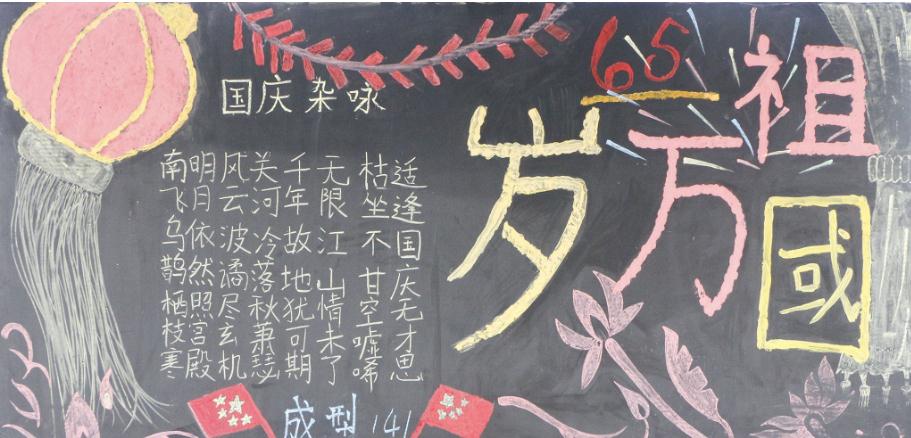 65
祖國
万
岁
国庆杂咏
适逢国庆无才思
枯坐不甘空嘘唏
无限江山情未了
千年故地犹可期
关河冷落秋兼瑟
风云波谲尽玄机
明月依然照宫殿
南飞乌鹊栖枝寒
成型141